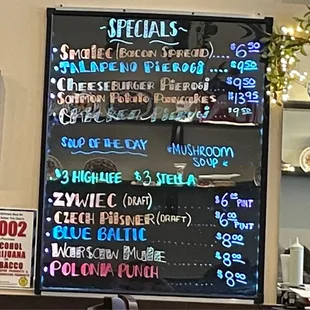 ~SPECIALS~
• Smalec (Bacon Spread).... $6.50
• Jalapeno Pierogi ... $9.50
• Cheeseburger Pierogi $9.50
• Salmon Potato Pancakes $13.95
$9.50
Soup of the Day
• Mushroom
Soup •
$3 Highlife $3 Stella
• Zywiec (Draft) .......... $6.00 Pint
• Czech Pilsner (Draft) ... $6.00 Pint
• Blue Baltic ............ $8.00
• Warsaw Mule ........... $8.00
• Polonia Punch .......... $8.00
002
COHOL
RIJUANA
BACCO